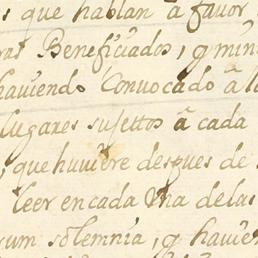 s que hablan â favor
ras Beneficiados, q min
haviendo Convocado â l
lugares sujettos â cada
, que huviere despues de
leer en cada Vna de las
rum solemnia, q havien